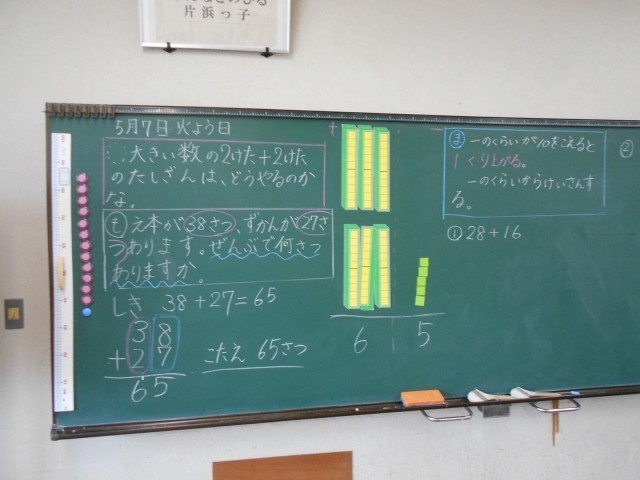 片浜っ子
5月7日 火よう日
大きい数の2けた+2けた
のたしざんは、どうやるのか
な。
も え本が38さつ、ずかんが27さ
つあります。ぜんぶで何さつ
ありますか。
しき 38+27=65
38
+27
65
こたえ 65さつ
6 5
ま 一のくらいが10をこえると
1くり上がる。
一のくらいからけいさんす
る。
① 28+16
②